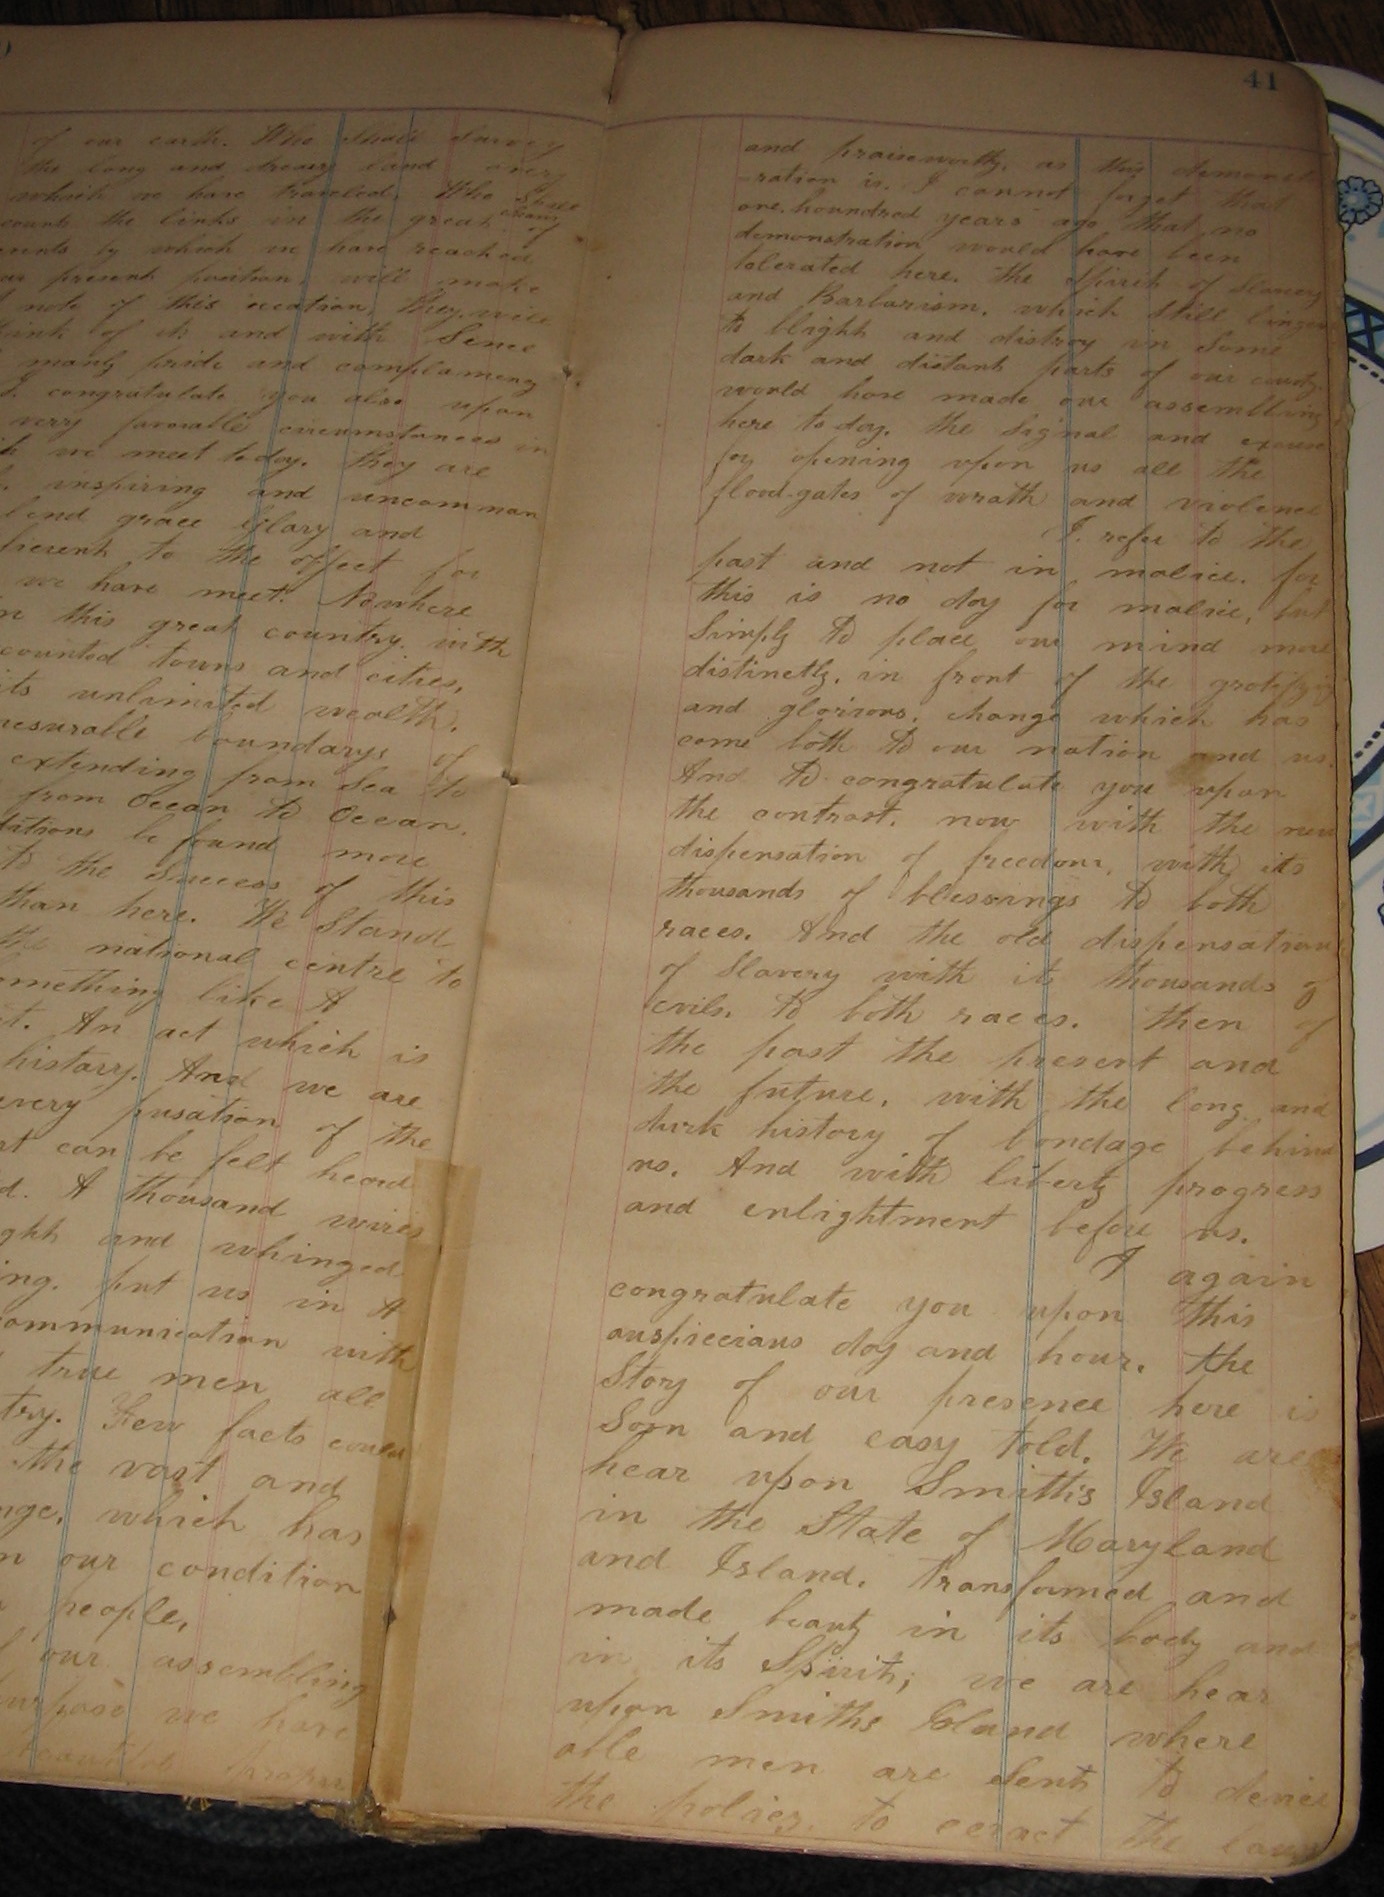 of our earth. Who shall survey
the long and dreary land over
which we have traveled. Who shall
count the links in the great chain of
events by which we have reached
our present position, will make
note of this occation, they will
think of it and with Sence
manly pride and complamency
I. congratulate you also upon
very favorable circumstances in
we meet to day. they are
inspiring and uncomman
lend grace Glory and
to the offect for
we have meet. Nowhere
in this great country. with
counted towns and cities,
its unlimited wealth,
mesurable boundarys of
extending from Sea to
from Ocean to Ocean.
ditions be found more
to the Success of this
than here. We Stand
the national centre to
omething like A
An act which is
history. And we are
every pusation of the
can be felt heard
A thousand wires
and whinged
put us in A
ommunication with
true men all
try. Few facts could
the vast and
nge, which has
in our condition
people,
our assembling
urpose we have
41
and praiseworthy. as this demonst
-ration is. I cannot forget that
one. houndred years ago that no
demonstration would have been
tolerated here. The Spirit of Slavery
and Barbarism. which still lingers
to blight and distroy in Some
dark and distant parts of our county.
would have made our assembling
here to day. the signal and excuse
for opening upon us all the
flood-gates of wrath and violence
I. refer to the
past and not in malice. for
this is no day for malice, but
Simply to place our mind more
distinctly. in front of the gratifying
and glorious. change which has
come both to our nation and us.
And to congratulate you upon
the contrast. now with the new
dispensation of freedom, with its
thousands of blessings to both
races. And the old dispensation
of Slavery with it thousands of
evils. to both races. then of
the past the present and
the future, with the long and
durk history of bondage behind
us. And with liberty progress
and enlightment before us.
I again
congratulate you upon this
auspiecious day and hour. the
Story of our presence here is
Soon and easy told. We are
hear upon Smiths Island
in the State of Maryland
and Island. transformed and
made beauty in its body and
in its Spirit; we are hear
upon Smiths Island where
able men are Sent to devise
the policy. to eeract the laws